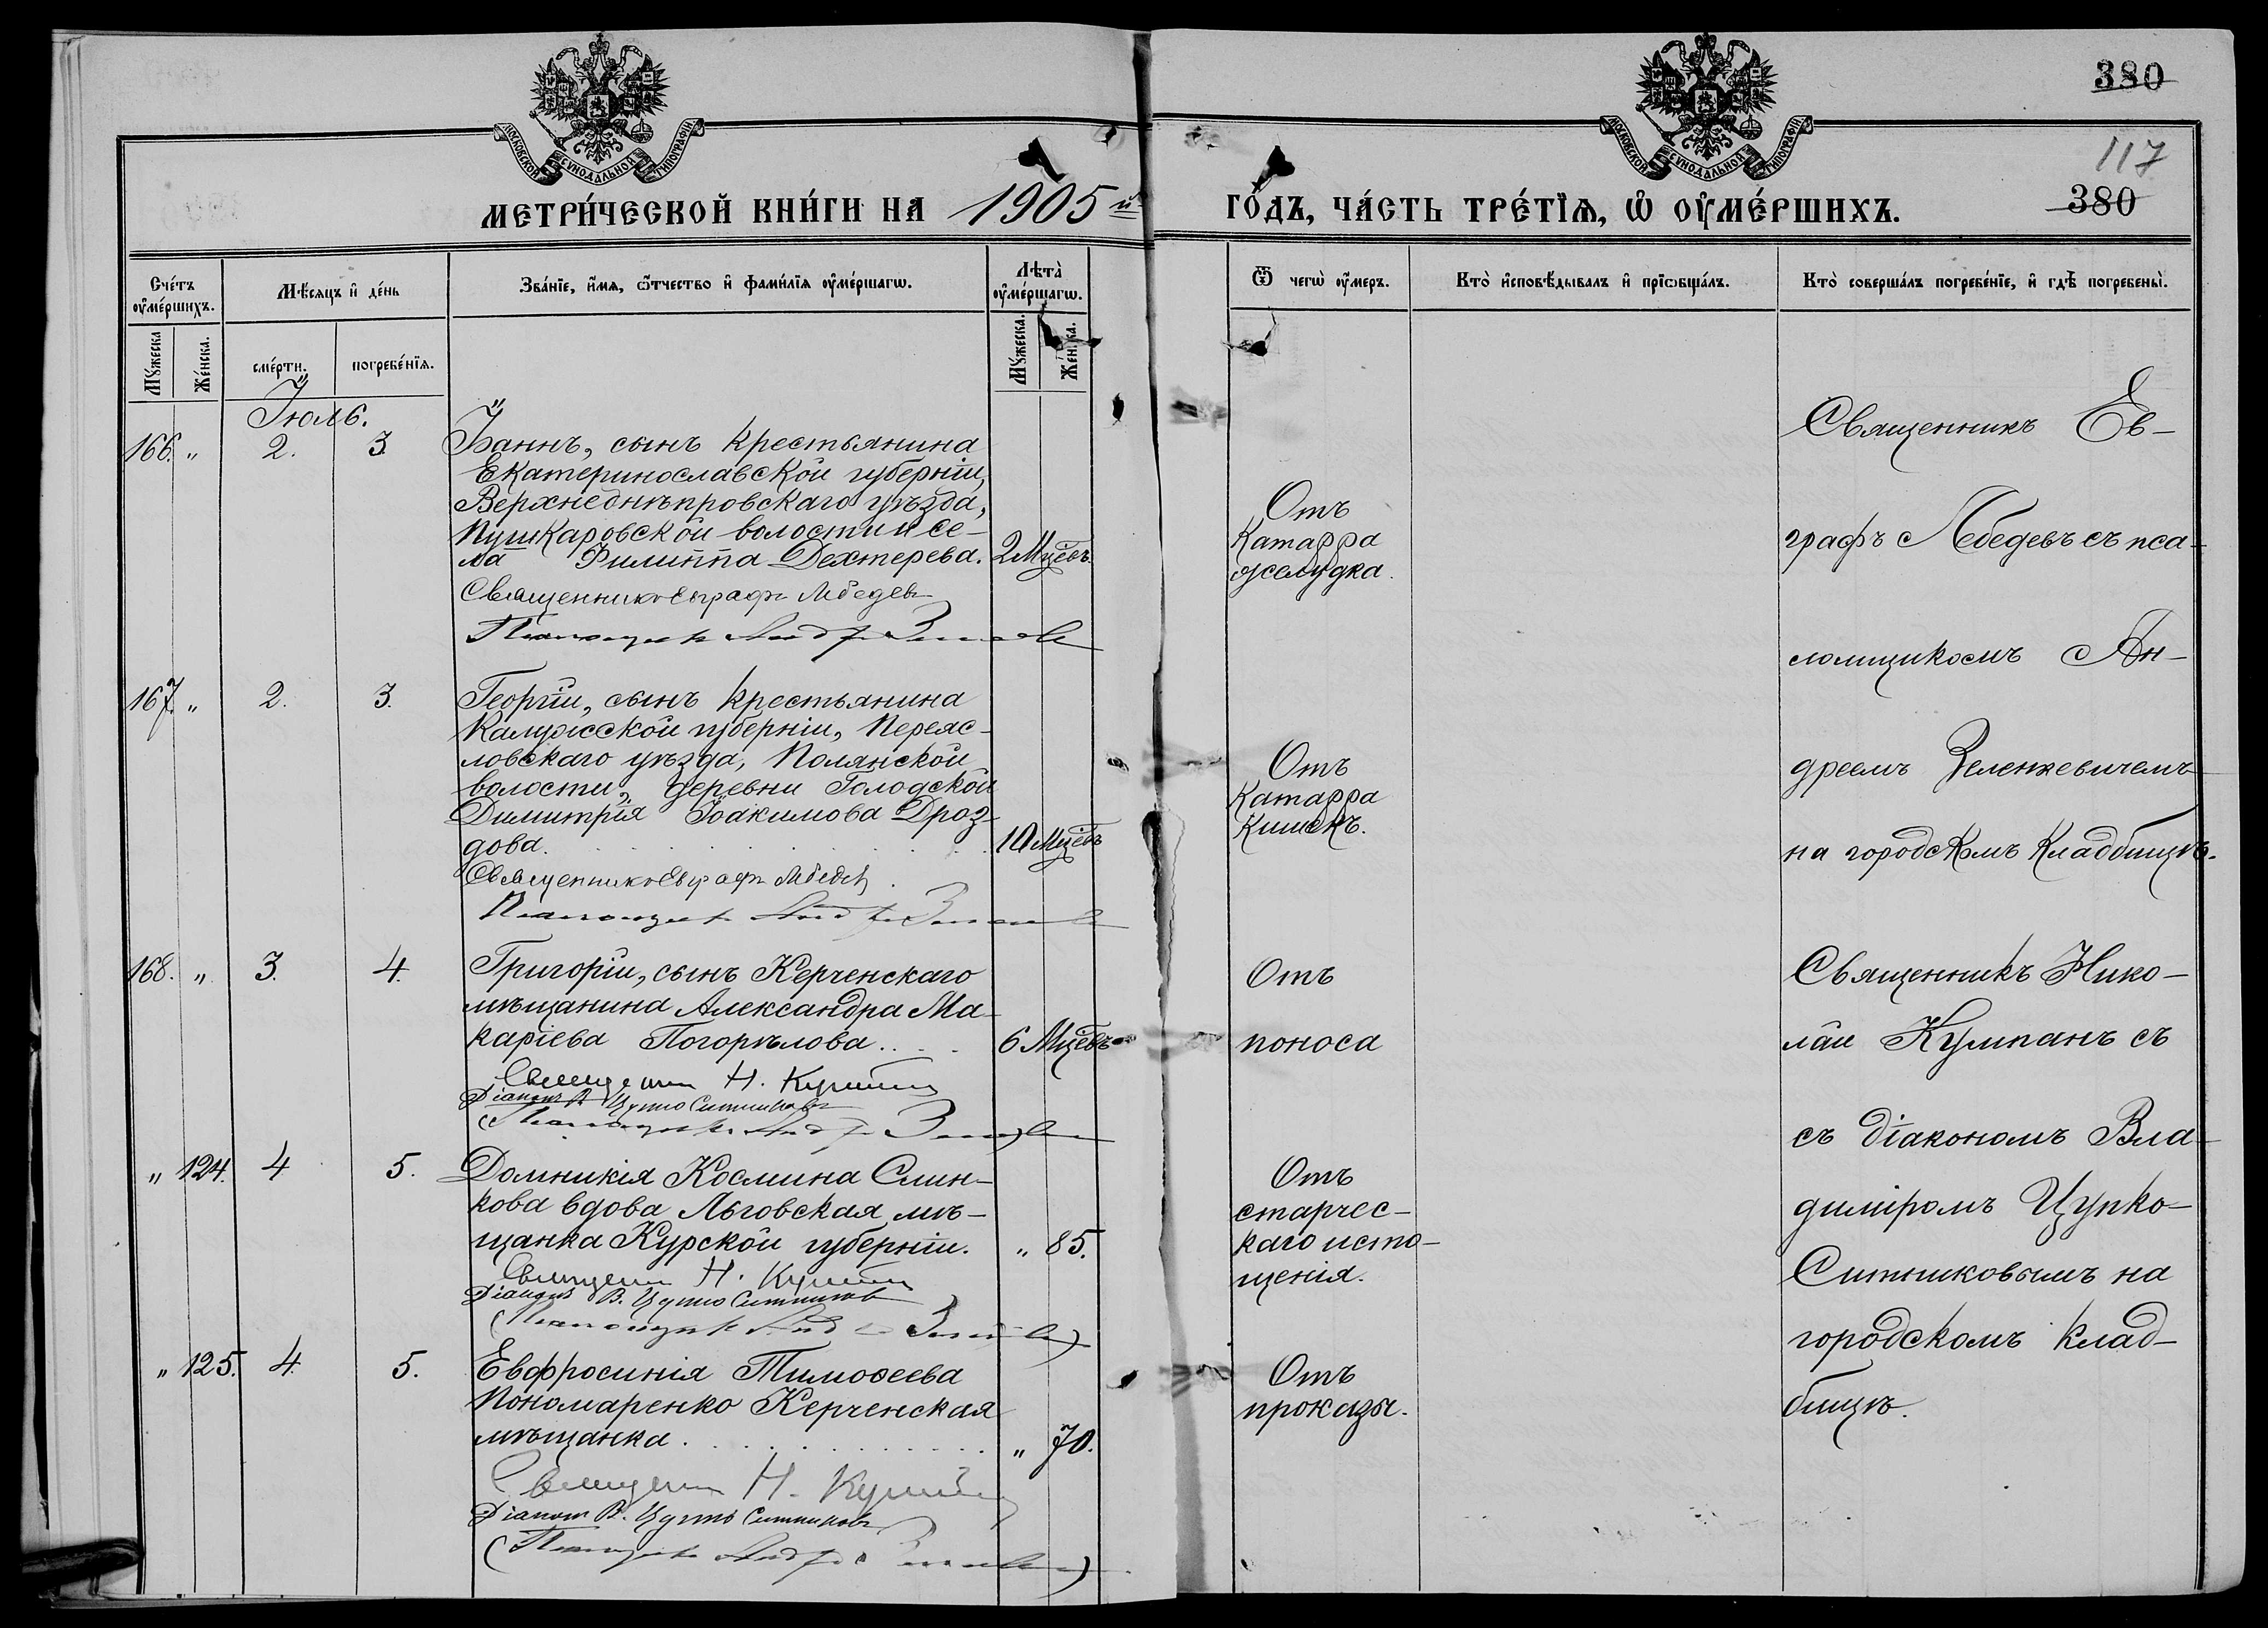 380
117
380
МОСКОВСКОЙ СѴНОДАЛЬНОЙ ТИПОГРАФІИ
МОСКОВСКОЙ СѴНОДАЛЬНОЙ ТИПОГРАФІИ
МЕТРИ́ЧЕСКОЙ КНИ́ГИ НА 1905й
ГО́ДЪ, ЧА́СТЬ ТРЕ́ТІѦ, Ѡ҆ ОУ҆МЕ́РШИХЪ.
Сче́тъ оу҆ме́ршихъ.
Мѣ́сяцъ и҆ де́нь
Зва́нїе, и҆́мя, ѻ҆́тчество и҆ фами́лїя оу҆ме́ршагѡ.
Лѣ́та оу҆ме́ршагѡ.
Ѿ чегѡ̀ оу҆́меръ.
Кто̀ и҆сповѣ́дывалъ и҆ прїѡбща́лъ.
Кто̀ соверша́лъ погребе́нїе, и҆ гдѣ̀ погребены̀.
Мꙋ́жеска
Же́нска.
сме́рти.
погребе́нїя.
Мꙋ́жеска.
Же́нска.
Іюль.
166. „ 2. 3. Іоаннъ, сынъ крестьянина
Екатеринославской губерніи,
Верхнеднѣпровскаго уѣзда,
Пушкаровской волости и се-
ла Филиппа Дехтерева. 2 Мцевъ.
Священникъ Евграфъ Лебедевъ
Псаломщикъ
Отъ
Катарра
желудка.
Священникъ Ев-
графъ Лебедевъ съ пса-
ломщикомъ Ан-
дреемъ Зеленкевичемъ
на городскомъ Кладбищѣ.
167. „ 2. 3. Георгій, сынъ крестьянина
Калужской губерніи, Переяс-
ловскаго уѣзда, Полянской
волости, деревни Голодской
Димитрія Іоакимова Дроз-
дова. 10 Мцевъ
Священникъ Евграфъ Лебедевъ
Псаломщикъ
Отъ
Катарра
Кишекъ.
168. „ 3. 4. Григорій, сынъ Керченскаго
мѣщанина Александра Ма-
каріева Погорѣлова.. 6 Мцевъ
Священникъ Н. Кумпанъ
Діаконъ В. Цупко Ситниковъ
Псаломщикъ
Отъ
поноса
Священникъ Нико-
лай Кумпанъ съ
съ діакономъ Вла-
диміромъ Цупко-
Ситниковымъ на
городскомъ клад-
бищѣ.
„ 124. 4 5. Домникія Космина Слин-
кова вдова Льговская мѣ-
щанка Курской губерніи. „ 85.
Священникъ Н. Кумпанъ
Діаконъ В. Цупко Ситниковъ
Псаломщикъ
Отъ
старчес-
каго исто-
щенія.
„ 125. 4. 5. Евфросинія Тимоѳеева
Пономаренко Керченская
мѣщанка. „ 70.
Священникъ Н. Кумпанъ
Діаконъ В. Цупко Ситниковъ
Псаломщикъ
Отъ
проказы.